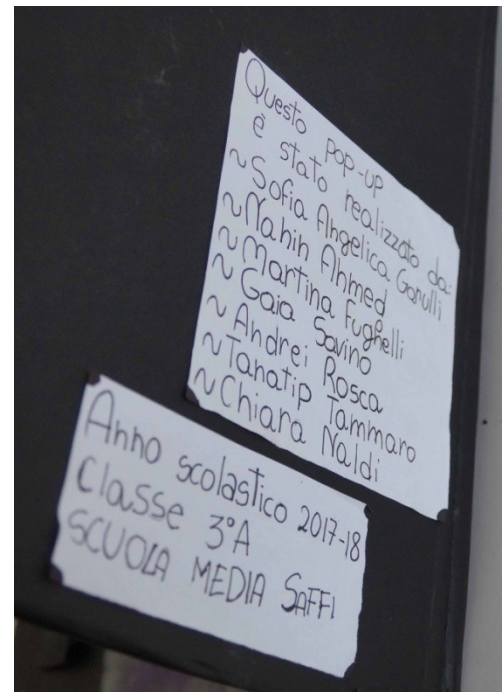 Questo pop-up
è stato realizzato da:
~Sofia Angelica Garulli
~Nahin Ahmed
~Martina Fughelli
~Gaia Savino
~Andrei Rosca
~Tanatip Tammaro
~Chiara Naldi
Anno scolastico 2017-18
Classe 3°A
SCUOLA MEDIA SAFFI